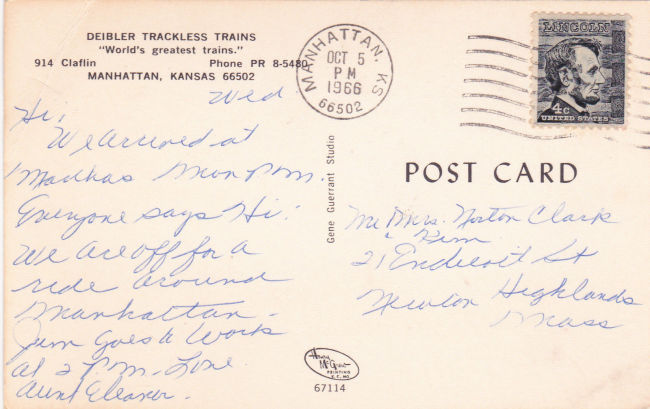 DEIBLER TRACKLESS TRAINS
"World's greatest trains."
914 Claflin Phone PR 8-5480
MANHATTAN, KANSAS 66502
Wed
Hi,
We arrived at
Marthas Mon Pm.
Everyone says Hi!
We are off for a
ride around
Manhattan.
Jim goes to work
at 2 P.m. Love
Aunt Eleanor.
Gene Guerrant Studio
MANHATTAN, KS
OCT 5
PM
1966
66502
LINCOLN
4c
UNITED STATES
POST CARD
Mr Mrs. Norton Clark
& Kim
21 Endicott St
Newton Highlands
Mass
Henry
McGrew
PRINTING
K.C. MO.
67114